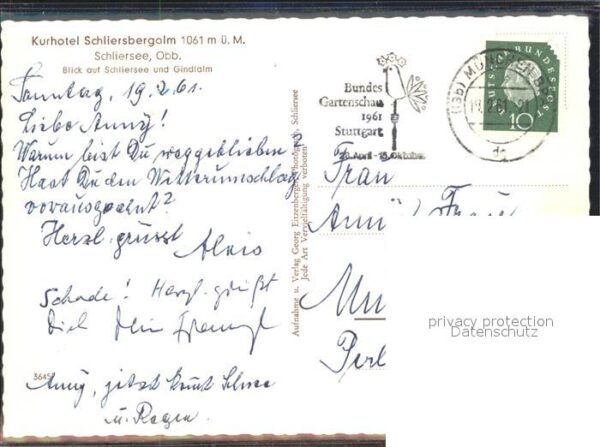 Kurhotel Schliersbergalm 1061 m ü. M.
Schliersee, Obb.
Blick auf Schliersee und Gindlalm
Sonntag, 19.2.61.
Liebe Anny!
Warum bist Du weggeblieben?
Hast Du den Witterumschlag
vorausgeahnt?
Herzl. grüsst Alois
Schade! Herzl. grüßt
Dich Dein
Anny, jetzt kommt Schnee
u. Regen.
3645
Aufnahme u. Verlag Georg Etzenberger, Photogesch., Schliersee
Jede Art Vervielfältigung verboten!
Bundes
Gartenschau
1961
Stuttgart
28. April - 15. Oktober
(13b) MÜNCHEN
19.2.61
DEUTSCHE BUNDESPOST
10
Frau
Mü
Perl
privacy protection
Datenschutz